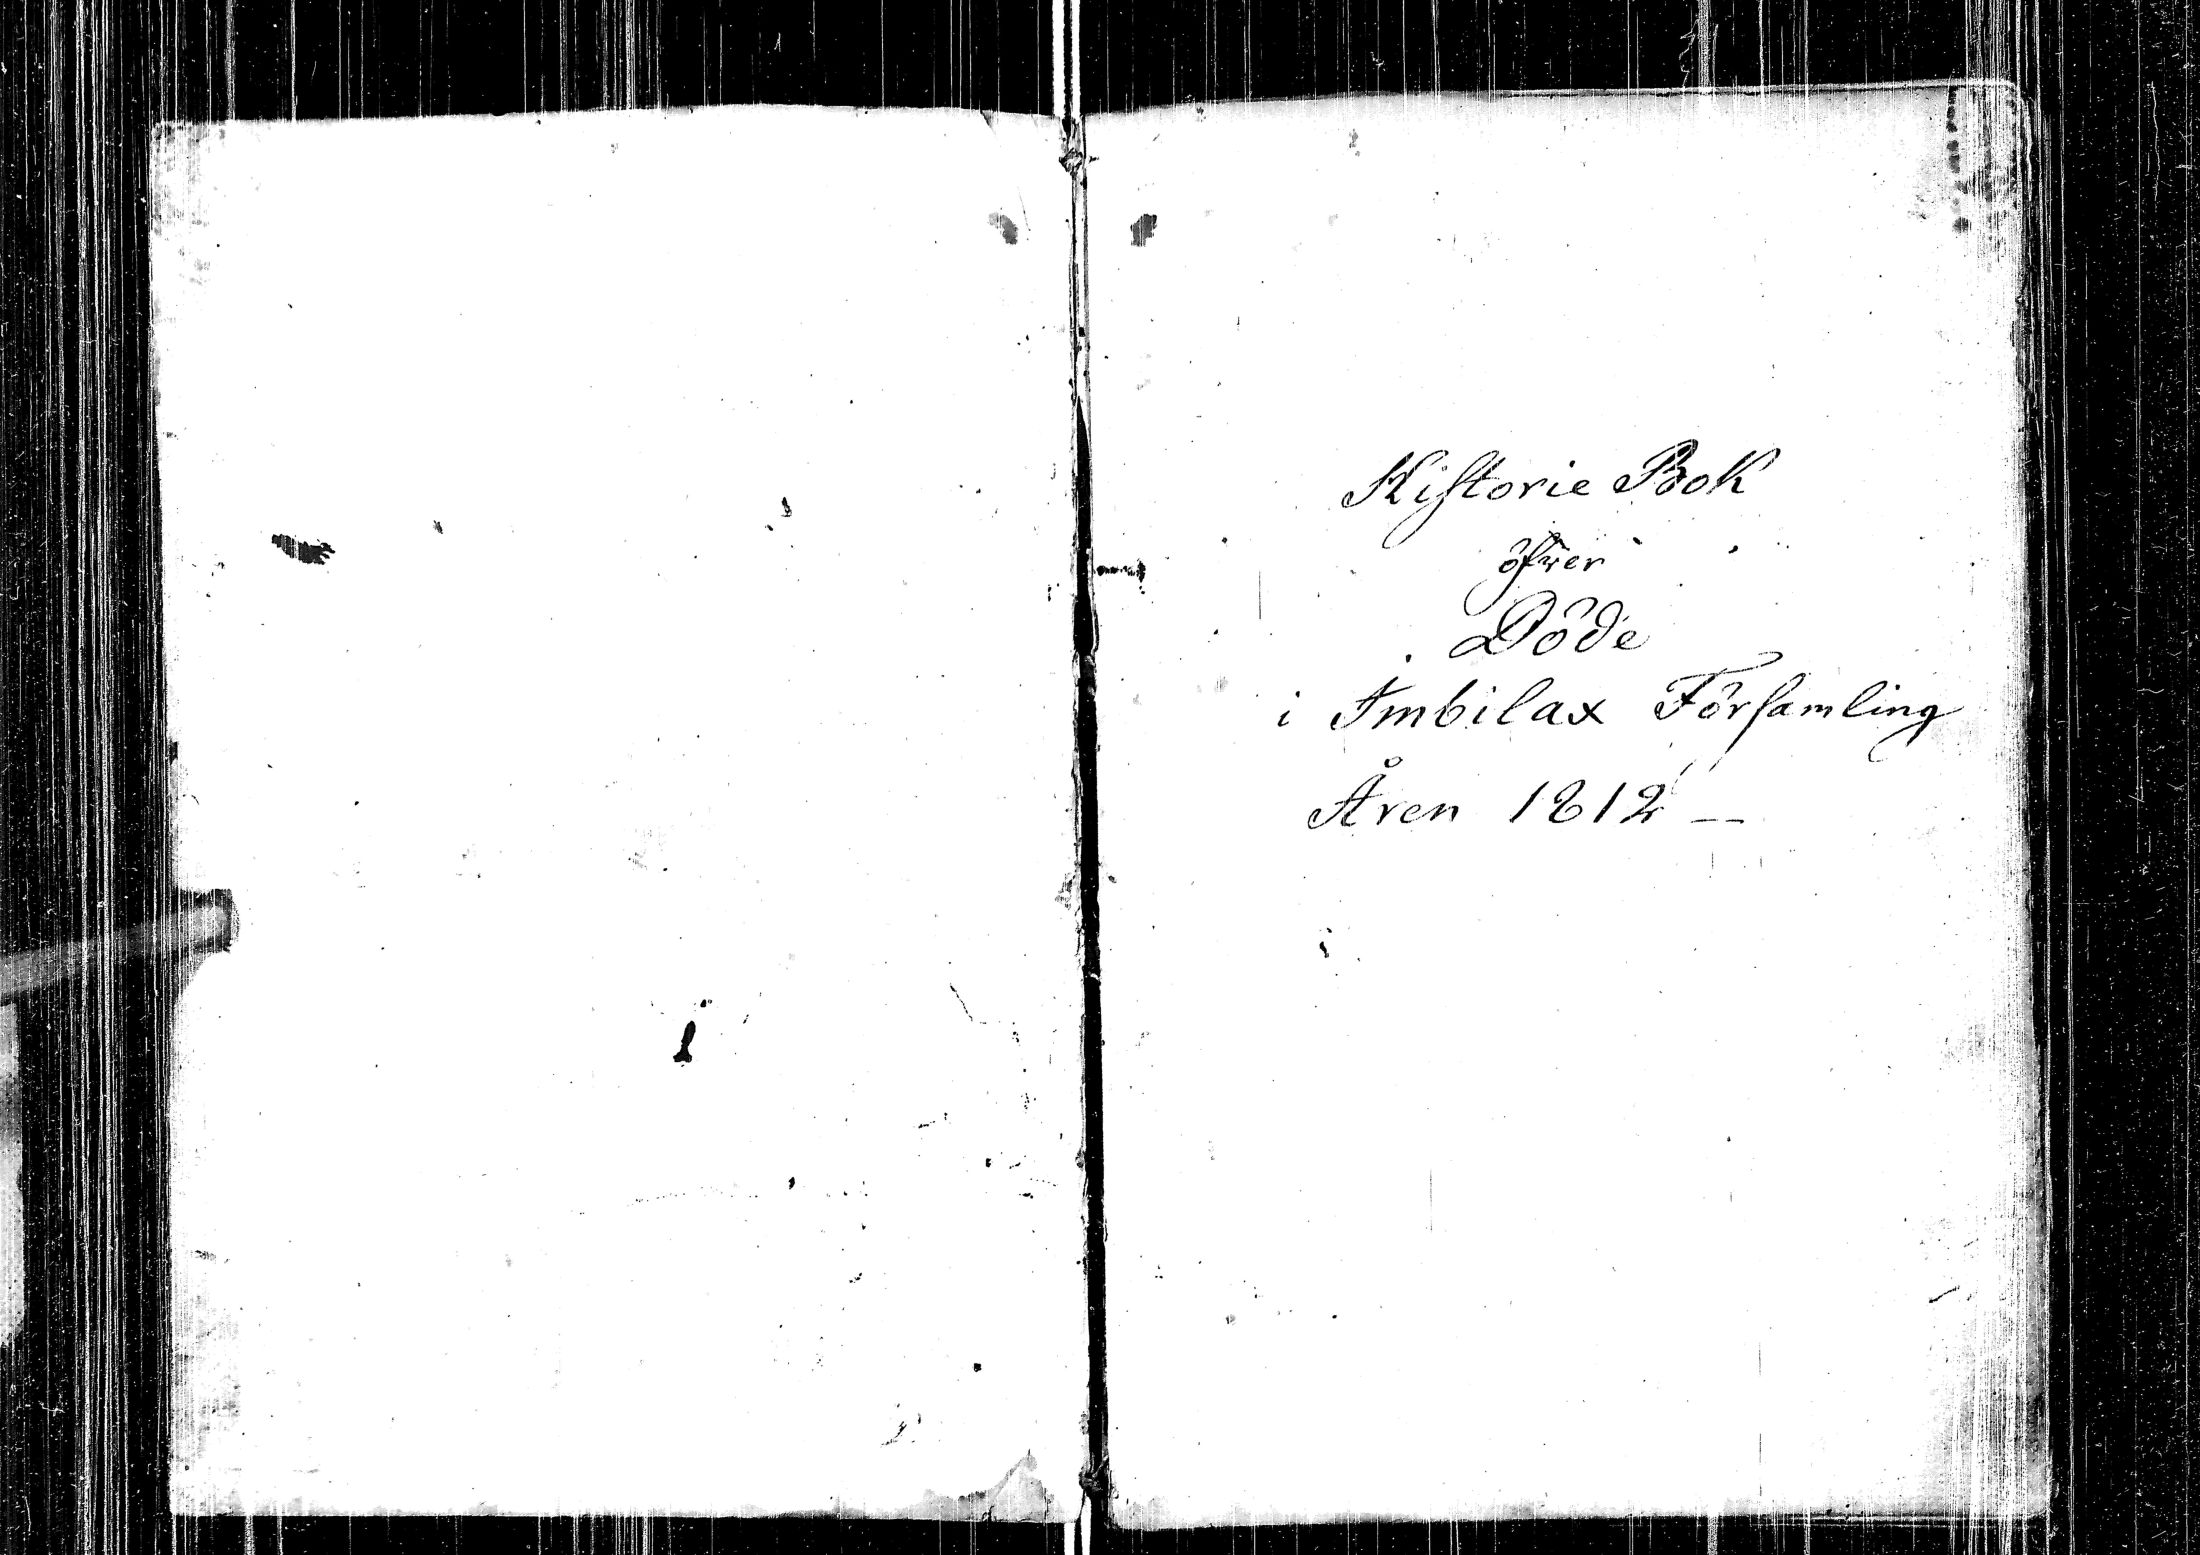 Historie Bok
öfwer
Döde
i Imbilax Församling
Åren 1812 —